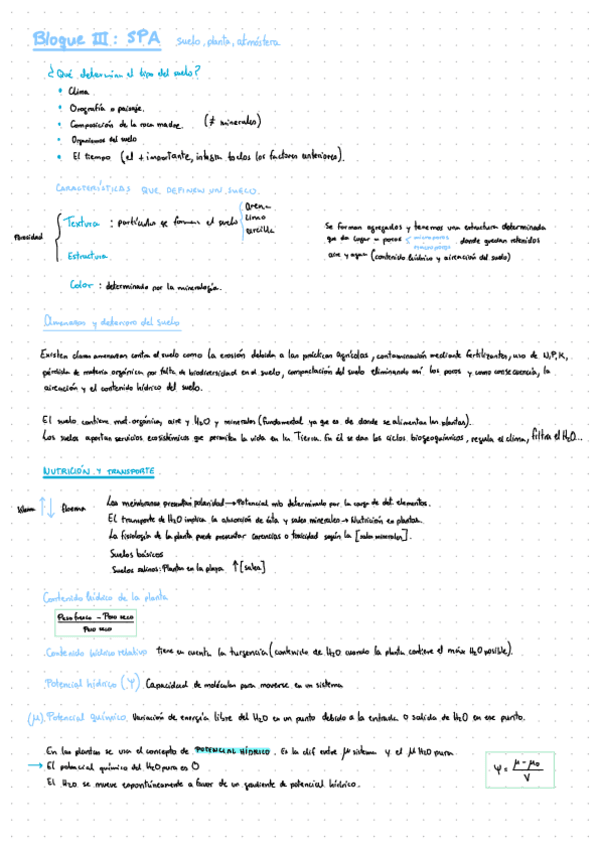 Bloque III: SPA suelo, planta, atmósfera
¿Qué determina el tipo del suelo?
• Clima
• Orografía o paisaje.
• Composición de la roca madre. (≠ minerales)
• Organismos del suelo
• El tiempo (el + importante, integra todos los factores anteriores).
CARACTERÍSTICAS QUE DEFINEN UN SUELO.
Porosidad
Textura : partículas que forman el suelo
arena
limo
arcilla
Estructura
Se forman agregados y tenemos una estructura determinada
que da lugar a poros microporos macroporos donde quedan retenidos
aire y agua (contenido hídrico y aireación del suelo)
Color : determinado por la mineralogía.
Amenazas y deterioro del suelo
Existen claras amenazas contra el suelo como la erosión debida a las prácticas agrícolas, contaminación mediante fertilizantes, uso de N,P,K,
pérdida de materia orgánica por falta de biodiversidad en el suelo, compactación del suelo eliminando así los poros y como consecuencia, la
aireación y el contenido hídrico del suelo.
El suelo contiene mat.orgánica, aire y H2O y minerales (fundamental ya que es de donde se alimentan las plantas).
Los suelos aportan servicios ecosistémicos que permiten la vida en la Tierra. En él se dan los ciclos biogeoquímicos, regula el clima, filtra el H2O...
NUTRICIÓN Y TRANSPORTE
Xilema ↑↓ floema
Las membranas presentan polaridad → Potencial mb determinado por la carga de det elementos.
El transporte de H2O implica la absorción de ésta y sales minerales → Nutrición en plantas.
La fisiología de la planta puede presentar carencias o toxicidad según la [sales minerales].
Suelos básicos
Suelos salinos: Plantas en la playa ↑[sales]
Contenido hídrico de la planta
Peso fresco - Peso seco
Peso seco
Contenido hídrico relativo tiene en cuenta la turgencia (contenido de H2O cuando la planta contiene el máx H2O posible).
Potencial hídrico (Ψ) Capacidad de moléculas para moverse en un sistema
(μ). Potencial químico. Variación de energía libre del H2O en un punto debido a la entrada o salida de H2O en ese punto.
En las plantas se usa el concepto de POTENCIAL HÍDRICO. Es la dif entre μ sistema y el μ H2O pura.
→ El potencial químico del H2O pura es 0
El H2O se mueve espontáneamente a favor de un gradiente de potencial hídrico.
Ψ = μ - μ0 / V